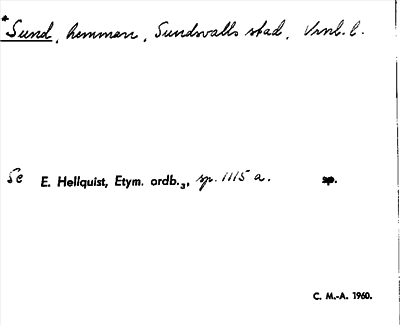 *Sund, hemman, Sundsvalls stad, Vrnl. l.
Se E. Hellquist, Etym. ordb.3, sp. 1115 a. sp.
C. M.-A. 1960.